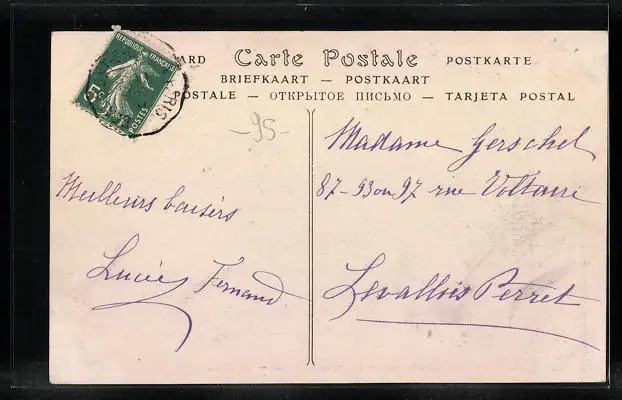 ARD Carte Postale POSTKARTE
BRIEFKAART — POSTKAART
POSTALE — ОТКРЫТОЕ ПИСЬМО — TARJETA POSTAL
REPUBLIQUE FRANÇAISE
5c
POSTES
RIS
-95-
Meilleurs baisers
Lucie Fernand
Madame Gerschel
87-93 ou 97 rue Voltaire
Levallois Perret